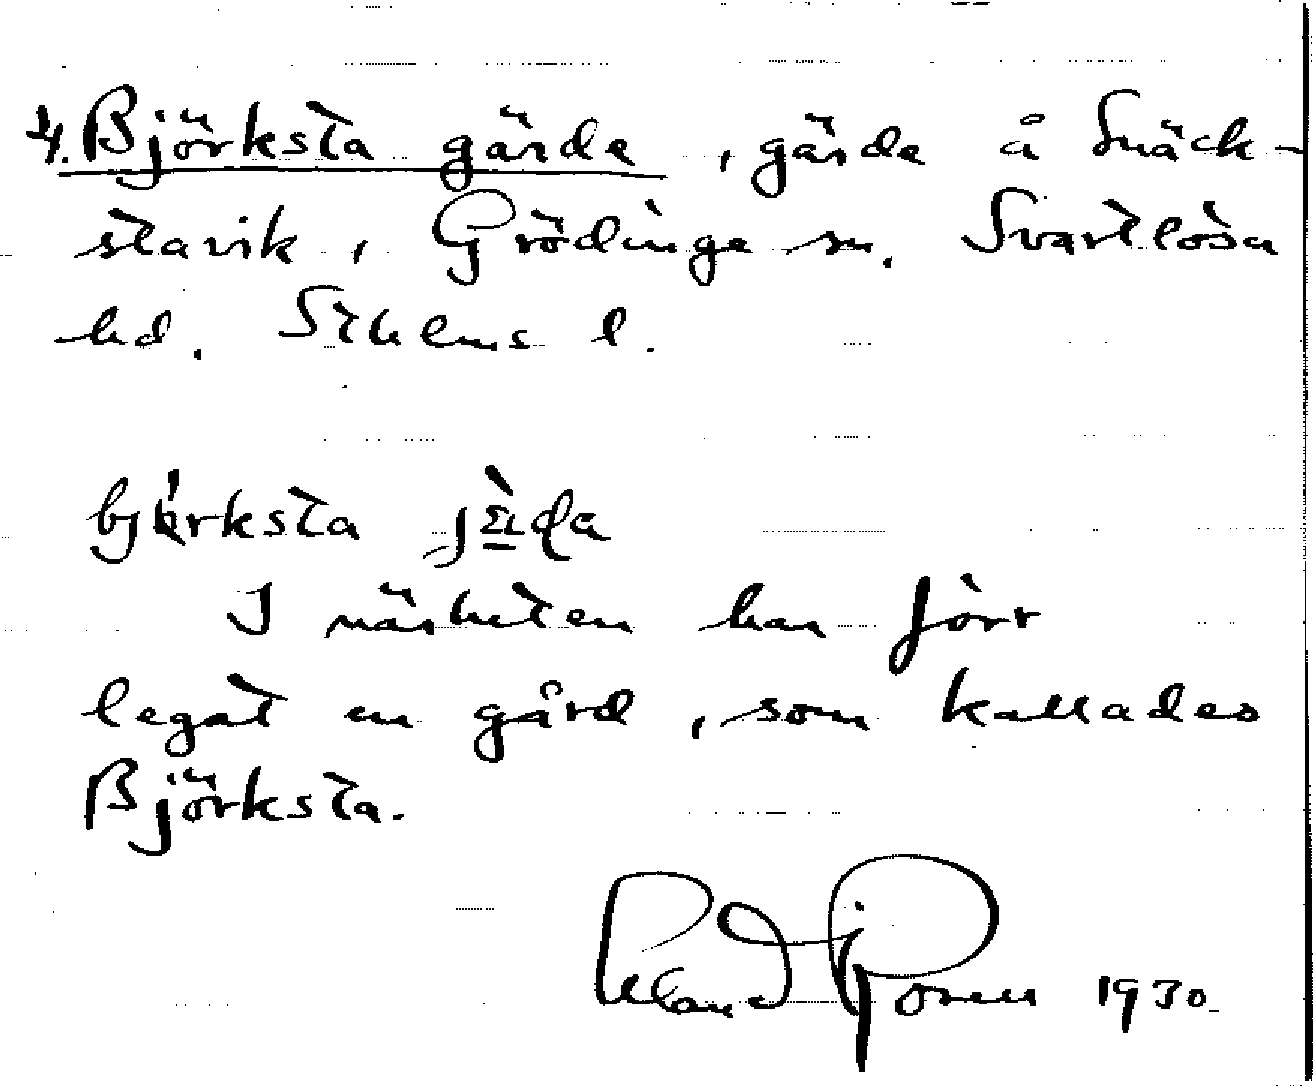 4. Björksta gärde, gärde å Snäck-
stavik, Grödinge sn. Svartlösa
hd. Sthlms l.
björksta jä̀ḍa
I närheten har förr
legat en gård, som kallades
Björksta.
1930.